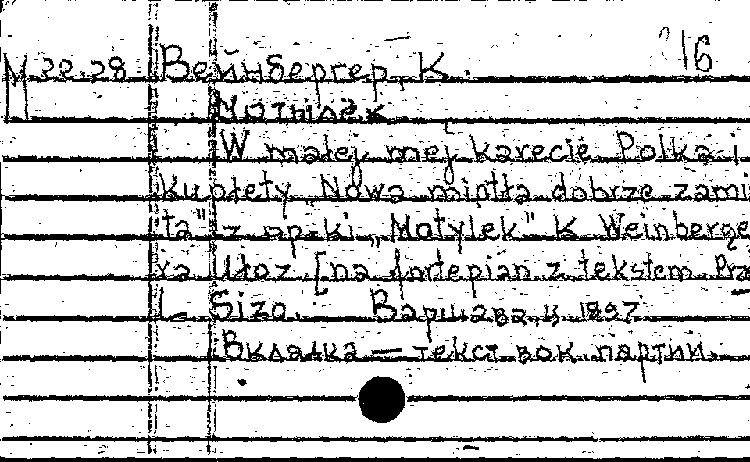 М 22.28 Вейнбергер, К. 16
Мотылек
W małej mej karecie. Polka i
Kuplety „Nowa miotła dobrze zami
ta" z op-ki „Motylek" K. Weinberge
ra. Ułoż. [na fortepian z tekstem
L. Sizo. Варшава, ц. 1897.
Вкладка = текст вок. партии.